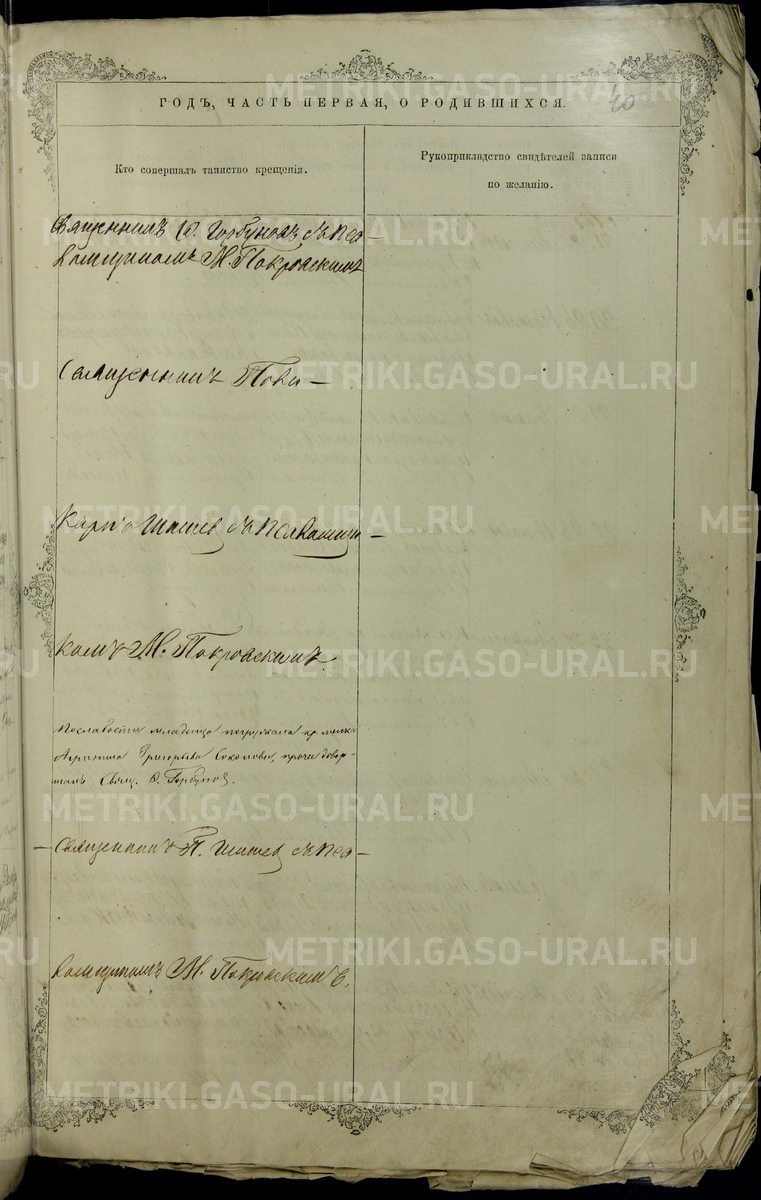 ГОДЪ, ЧАСТЬ ПЕРВАЯ, О РОДИВШИХСЯ.
40
Кто совершалъ таинство крещенія.
Рукоприкладство свидѣтелей записи
по желанію.
Священникъ Ѳ. Горбуновъ съ пса–
ломщикомъ М. Покровскимъ
Священникъ Поли–
карпъ Шишев съ псаломщи–
комъ М. Покровскимъ.
По слабости младенца погружала
Григорьева
Свящ. Ѳ. Горбунов.
– Священникъ П. Шишев съ пса–
ломщикомъ М. Покровскимъ.
METRIKI.GASO-URAL.RU